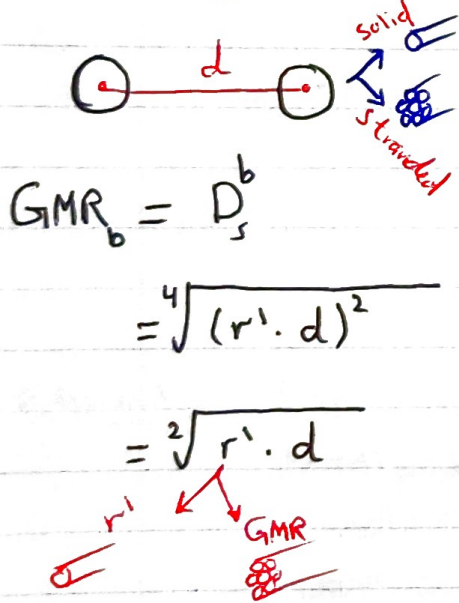 d
solid
stranded
GMR_b = D_s^b
= ∜(r'. d)²
= ²√r'. d
r'
GMR